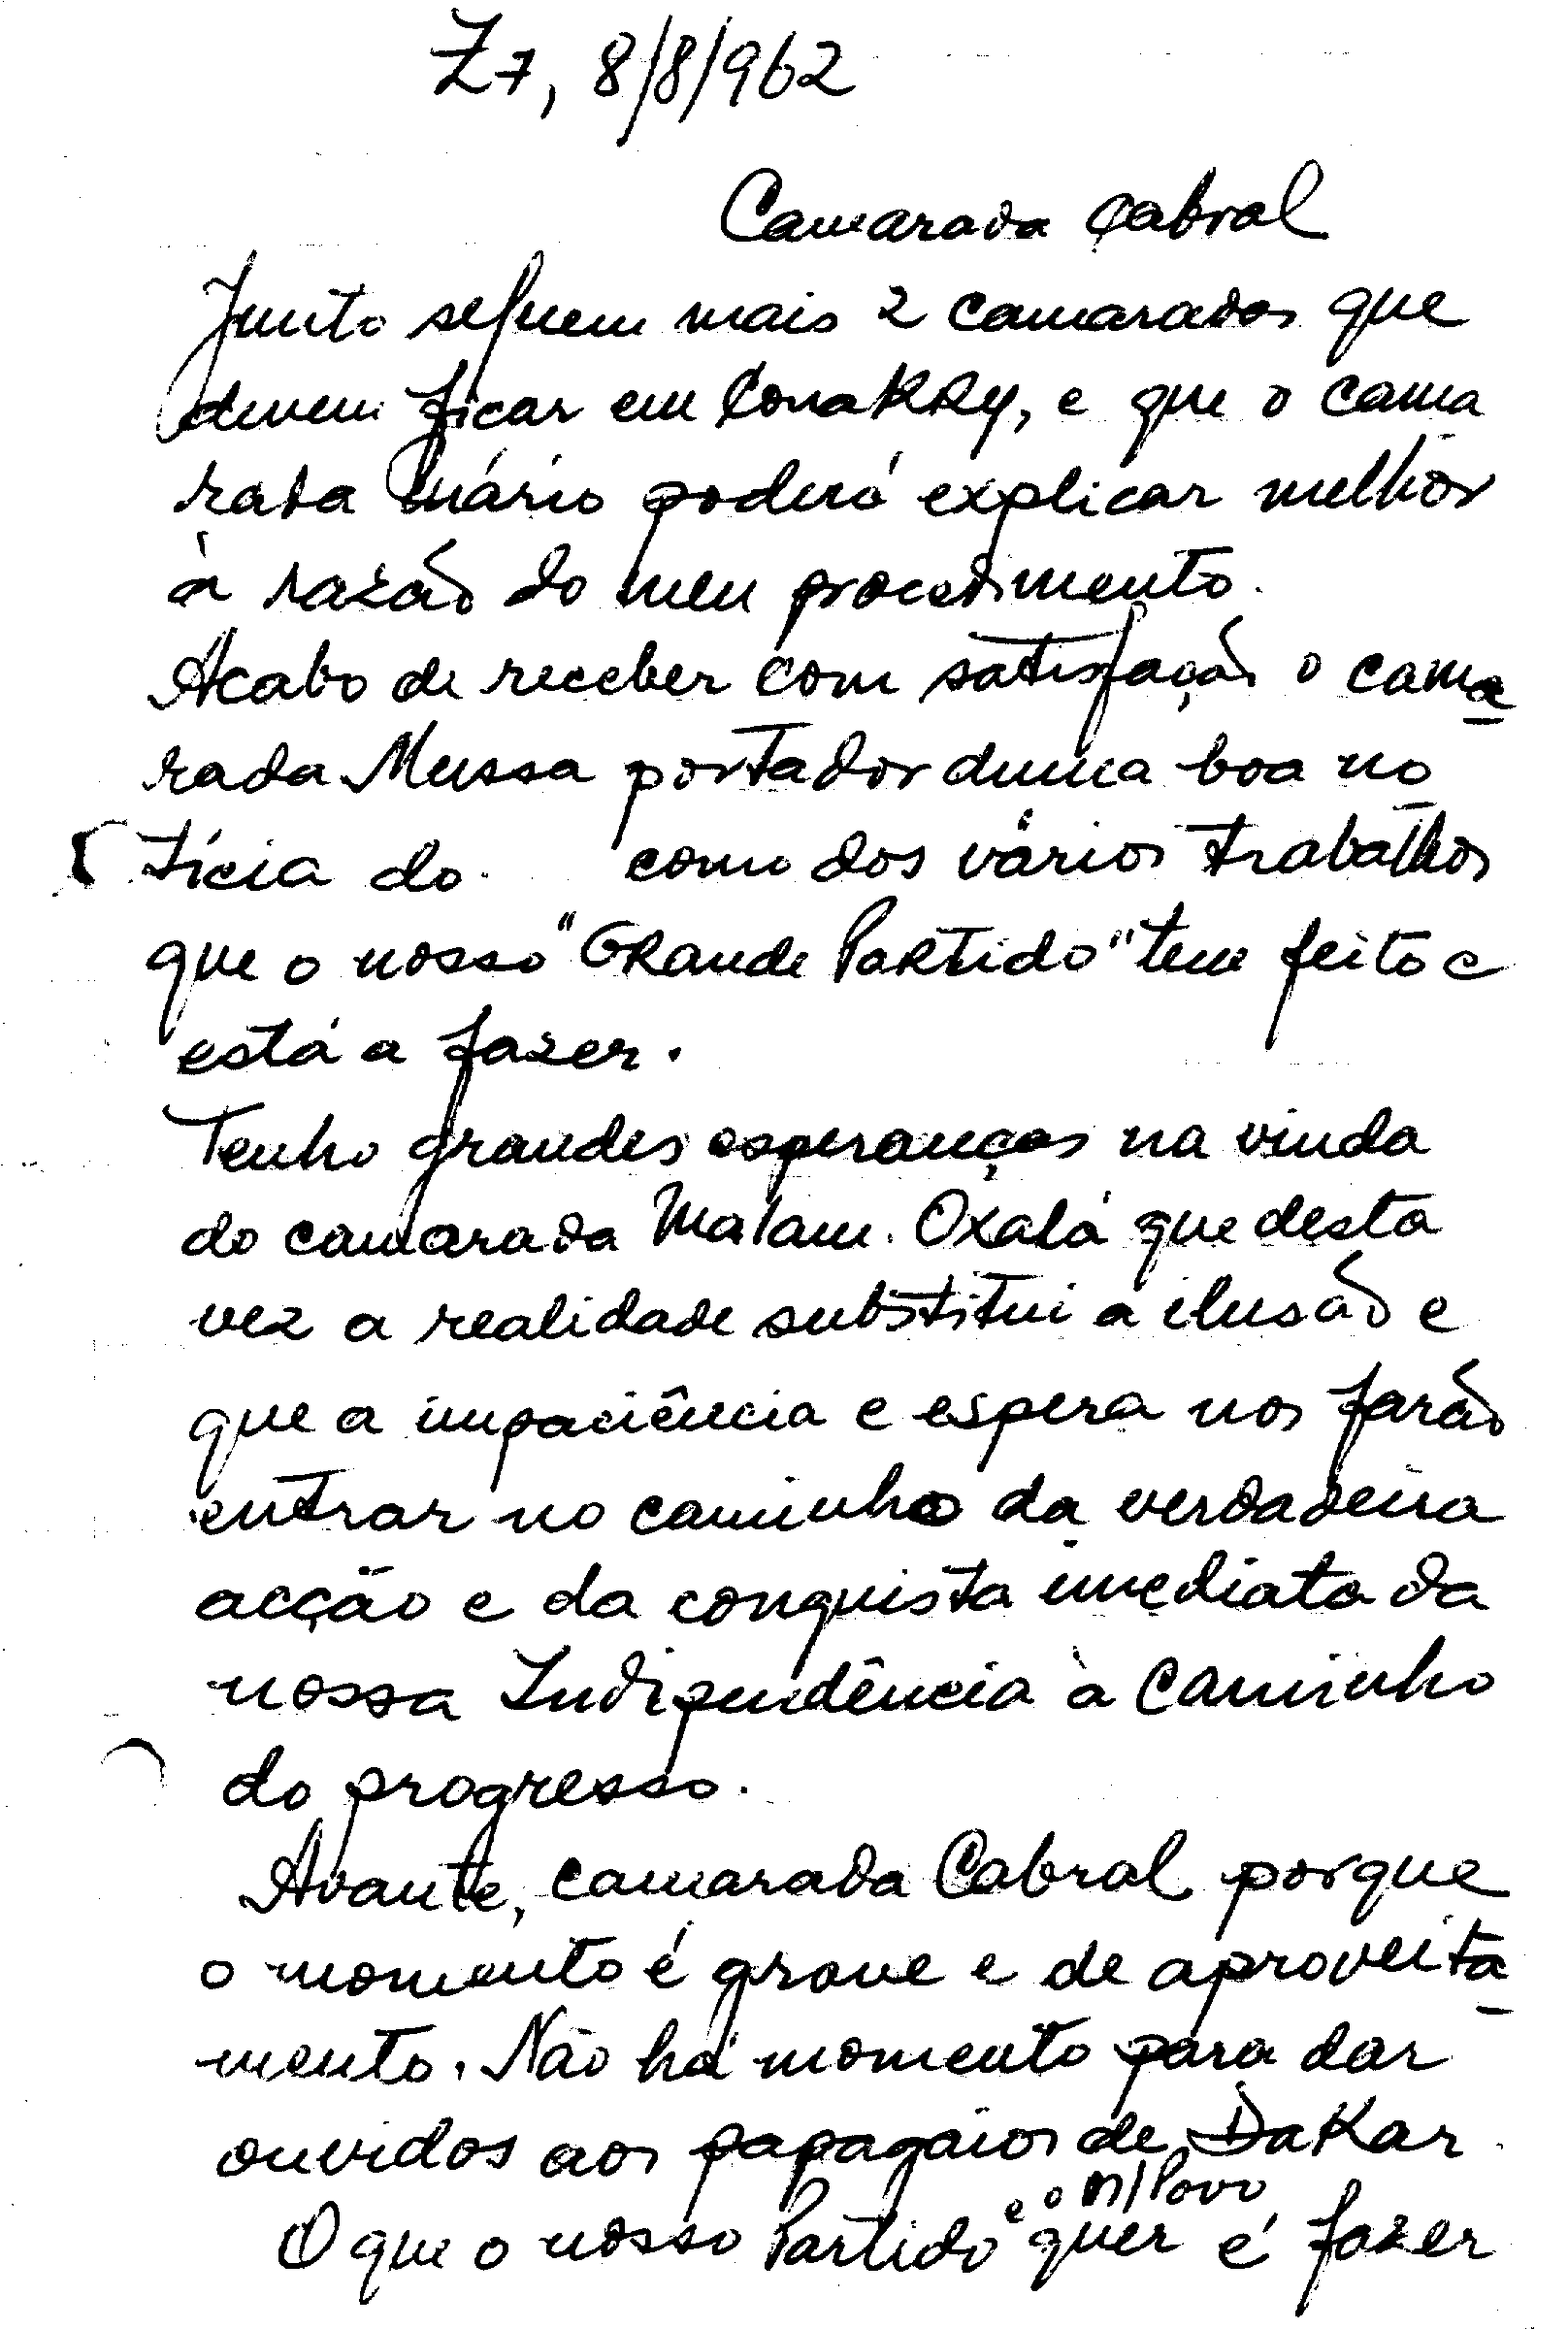 Z7, 8/8/962
Camarada Cabral
Junto seguem mais 2 camaradas que
devem ficar em Conakry, e que o cama
rada Mário poderá explicar melhor
à razão do meu procedimento.
Acabo de receber com satisfação o cama
rada Mussa portador duma boa no
tícia do como dos vários trabalhos
que o nosso "Grande Partido" tem feito e
está a fazer.
Tenho grandes esperanças na vinda
do camarada Malam. Oxalá que desta
vez a realidade substitui a ilusão e
que a impaciência e espera nos farão
entrar no caminho da verdadeira
acção e da conquista imediata da
nossa Indipendência à caminho
do progresso.
Avante, camarada Cabral porque
o momento é grave e de aproveita
mento. Não há momento para dar
ouvidos aos papagaios de Dakar.
O que o nosso Partido e o n/Povo quer é fazer